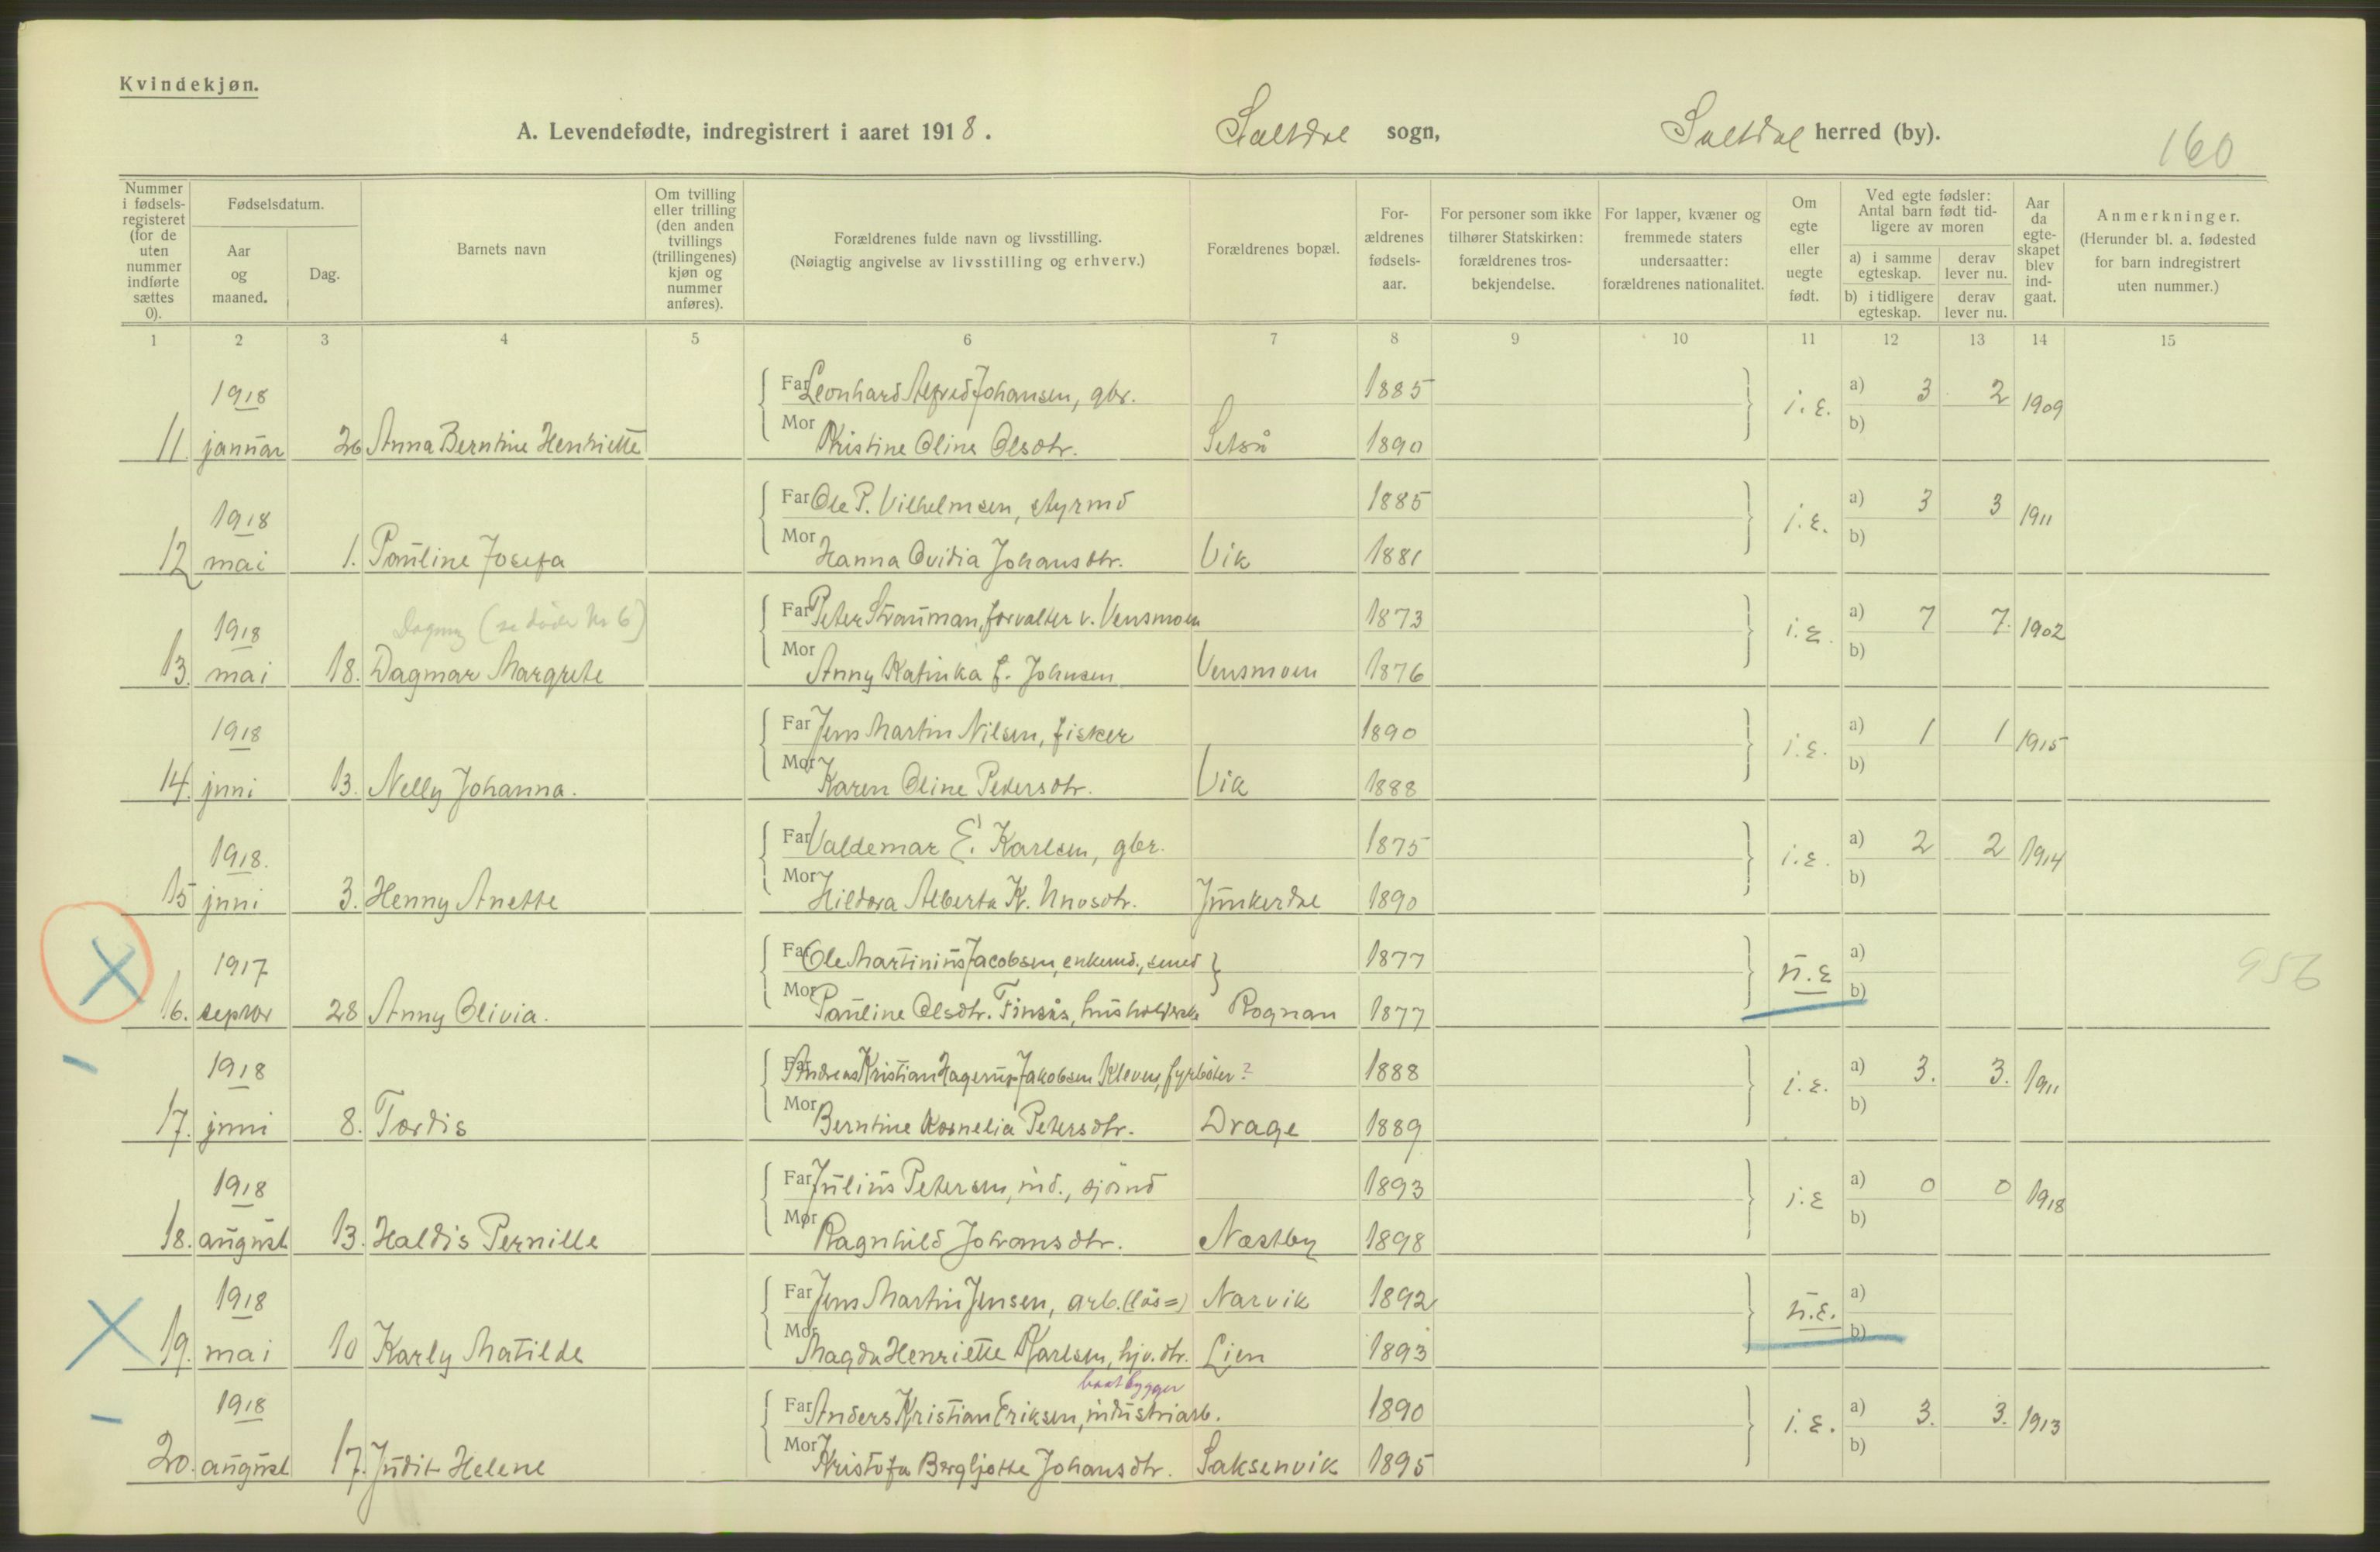 Kvindekjøn.
A. Levendefødte, indregistrert i aaret 1918. Saltdal sogn, Saltdal herred (by). 160
Nummer i fødsels-registeret (for de uten nummer indførte sættes 0).
Fødselsdatum.
Aar og maaned.
Dag.
Barnets navn
Om tvilling eller trilling (den anden tvillings (trillingenes) kjøn og nummer anføres).
Forældrenes fulde navn og livsstilling.
(Nøiagtig angivelse av livsstilling og erhverv.)
Forældrenes bopæl.
For-ældrenes fødsels-aar.
For personer som ikke tilhører Statskirken: forældrenes tros-bekjendelse.
For lapper, kvæner og fremmede staters undersaatter: forældrenes nationalitet.
Om egte eller uegte født.
Ved egte fødsler: Antal barn født tid-ligere av moren
a) i samme egteskap. derav lever nu.
b) i tidligere egteskap. derav lever nu.
Aar da egte-skapet blev ind-gaat.
Anmerkninger.
(Herunder bl. a. fødested for barn indregistrert uten nummer.)
1 2 3 4 5 6 7 8 9 10 11 12 13 14 15
1918 Far Leonhard Alfred Johansen, gbr. 1885 i.e. a) 3 2 1909
11. januar 26 Anna Berntine Henriette Mor Kristine Oline Olsdtr. Setså 1890 b)
1918 Far Ole P. Vilhelmsen, styrmd 1885 i.e. a) 3 3 1911
12 mai 1. Pauline Josefa Mor Hanna Ovidia Johansdtr. Vik 1881 b)
Dagny (se døde No 6)
1918 Far Peter Strauman, forvalter v. Vensmoen 1873 i.e. a) 7 7. 1902
13. mai 18. Dagmar Margrete Mor Anny Katinka f. Johnsen Vensmoen 1876 b)
1918 Far Jens Martin Nilsen, fisker 1890 i.e. a) 1 1 1915
14. juni 13. Nelly Johanna. Mor Karen Oline Pedersdtr. Vik 1888 b)
1918. Far Valdemar E. Karlsen, gbr. 1875 i.e. a) 2 2 1914
15 juni 3. Henny Anette Mor Hildora Alberta K. Unosdtr. Junkerdal 1890 b)
1917 Far Ole Martinius Jacobsen, enkemd., smed 1877 u.e a) 956
16. septbr 28 Anny Olivia. Mor Pauline Olsdtr. Finsås, husholderske Rognan 1877 b)
1918 Far Andreas Kristian Hagerup Jakobsen Kleven, fyrbøter? 1888 i.e. a) 3. 3. 1911
17. juni 8. Tordis Mor Berntine Kornelia Petersdtr. Drage 1889 b)
1918 Far Julius Petersen, ind., sjömd 1893 i.e a) 0 0 1918
18. august 13. Haldis Pernille Mor Ragnhild Johansdtr. Næstby 1898 b)
1918 Far Jens Martin Jensen, arb. (løs=) Narvik 1892 u.e. a)
19. mai 10 Karly Matilde Mor Magda Henriette Karlsen, hjv. dtr. Lien 1893 b)
baatbygger
1918 Far Anders Kristian Eriksen, industriarb. 1890 i.e. a) 3. 3. 1913
20. august 17. Judit Helene Mor Kristofa Bergljotte Johansdtr. Saksenvik 1895 b)